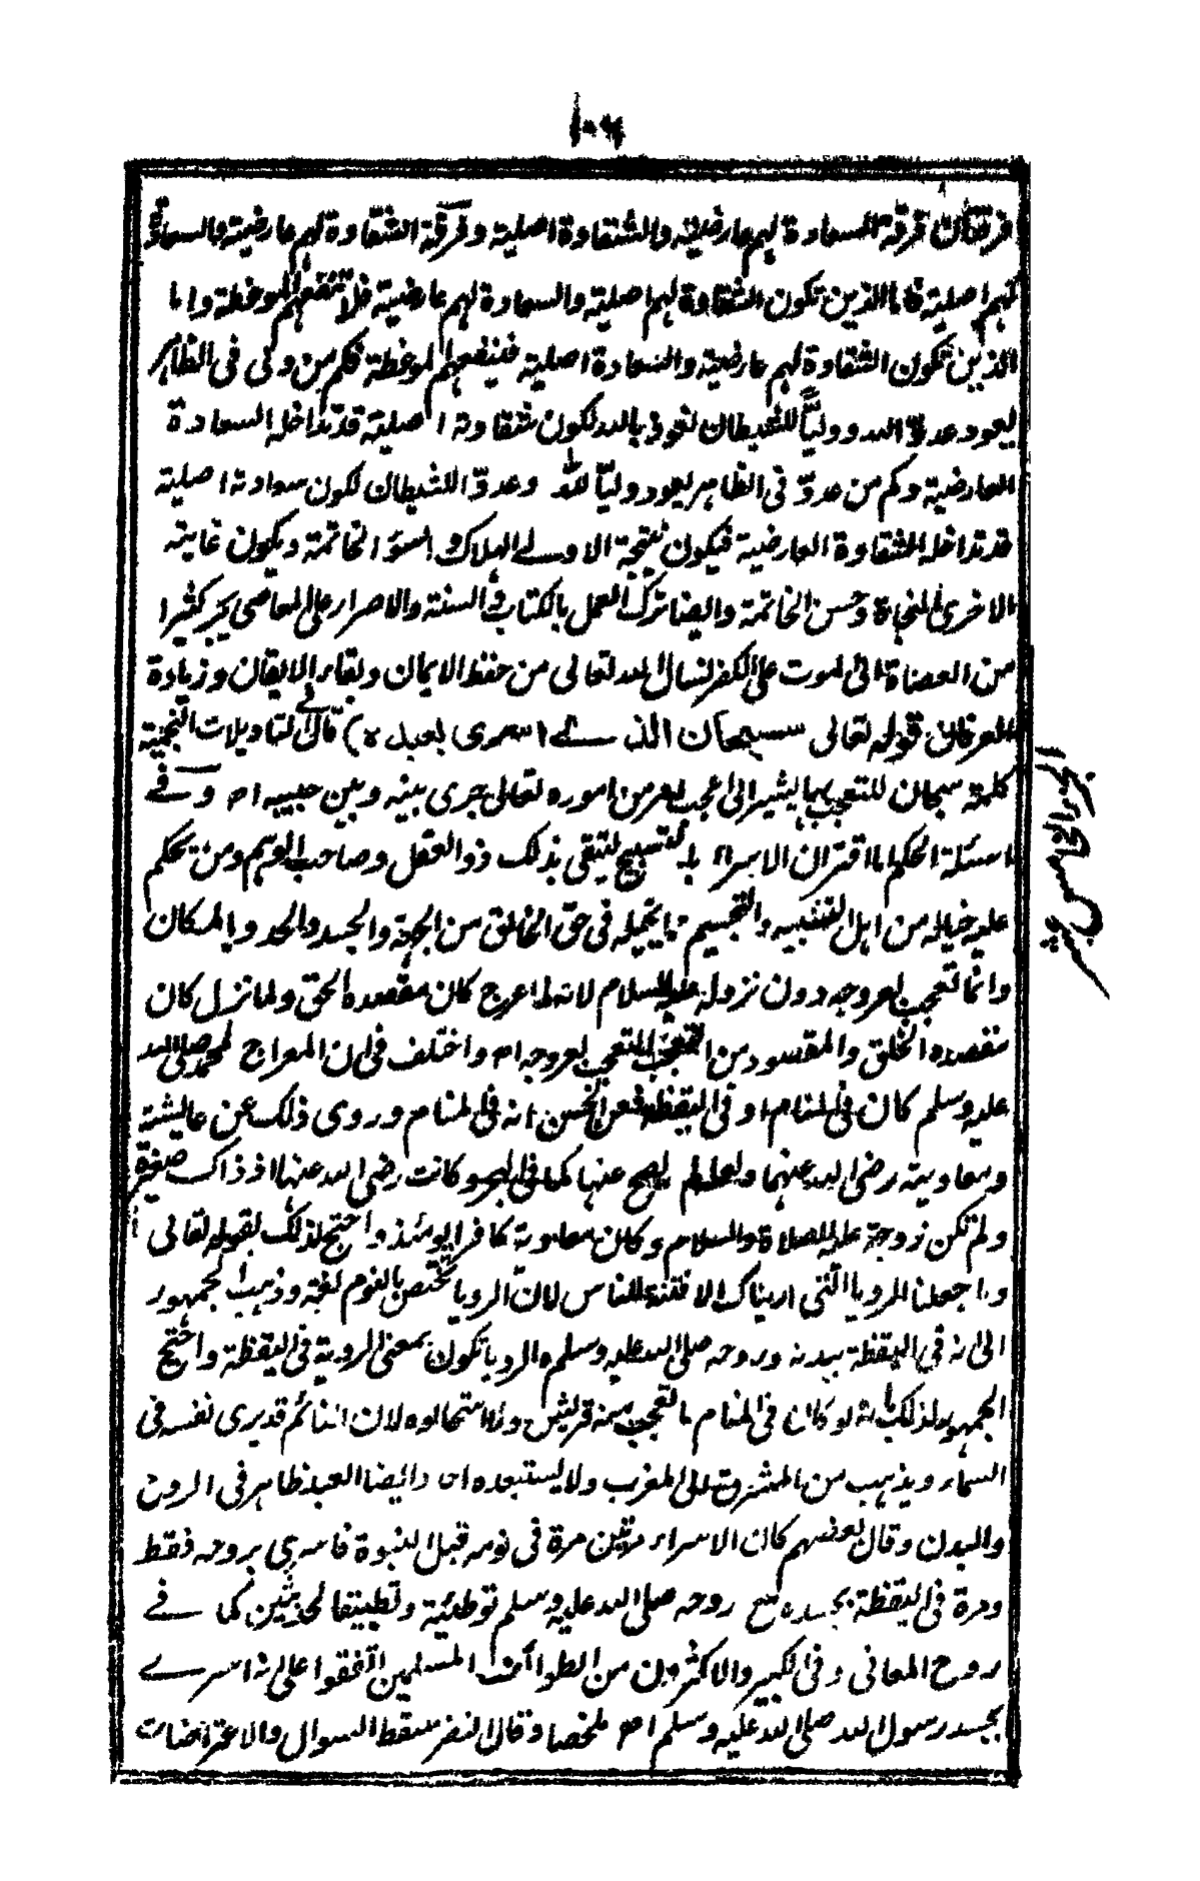 ١٠٦
فرقتان فرقة السعادة لهم عارضية والشقاوة اصلية وفرقة الشقاوة لهم عارضية والسعادة
لهم اصلية فاما الذين تكون الشقاوة لهم اصلية والسعادة لهم عارضية فلا تنفعهم الموعظة واما
الذين تكون الشقاوة لهم عارضية والسعادة اصلية فينفعهم الموعظة فكم من ولى فى الظاهر
يعود عدوّ الله ووليّاً للشيطان نعوذ بالله لكون شقاوته اصلية قد تداخله السعادة
العارضية وكم من عدوّ فى الظاهر يعود وليّا لله وعدوّا للشيطان لكون سعادته اصلية
قد تداخله الشقاوة العارضية فيكون نتيجة الاولے الهلاك وسوء الخاتمة ويكون غايته
الاخرى النجاة وحسن الخاتمة وايضا ترك العمل بالكتاب والسنة والاصرار على المعاصى يجر كثيرا
من العصاة الى الموت على الكفر نسال الله تعالى من حفظ الايمان وبقاء الايقان وزيادة
العرفان قوله تعالى سبحان الذے اسرى بعبده) قال فے التاويلات النجمية
كلمة سبحان للتعجب بها يشير الى اعجب امر من اموره تعالى جرى بينه وبين حبيبه اه وفے
اسئلة الحكم اما اقتران الاسراء بالتسبيح ليتقى بذلك ذو العقل وصاحب الوهم ومن تحكم
عليه خياله من اهل التشبيه والتجسيم مما يتخيله فى حق الخالق من الجهة والجسد والحد والمكان
وانما تعجب لعروجه دون نزوله عليه السلام لانه لما عرج كان مقصده الحق ولما نزل كان
مقصده الخلق والمقسود من التعجب التعجب لعروجه اه واختلف فى ان المعراج لمحمد صلى الله
عليه وسلم كان فى المنام او فى اليقظة فعن الحسن انه فى المنام وروى ذلك عن عايشة
ومعاوية رضى الله عنهما ولعله لم يصح عنها كما فى البحر وكانت رضى الله عنها اذ ذاك صغيرة
ولم تكن زوجة عليه الصلاة والسلام وكان معاوية كافرا يومئذ واحتج لذلك بقوله تعالى
وما جعلنا الرويا التى اريناك الا فتنة للناس لان الرويا تختص بالنوم لغة وذهب الجمهور
الى انه فى اليقظة ببدنه وروحه صلى الله عليه وسلم والرويا تكون بمعنى الروية فى اليقظة واحتج
الجمهور لذلك بانه لو كان فى المنام ما تعجب منه قريش ولا استحالوه لان النائم قد يرى نفسه فى
السماء ويذهب من المشرق الى المغرب ولا يستبعده احد وايضا العبد ظاهر فى الروح
والبدن وقال بعضهم كان الاسراء مرتين مرة فى نومه قبل النبوة فاسرى بروحه فقط
ومرة فى اليقظة بجسده مع روحه صلى الله عليه وسلم توطئية وتطبيقا لحديثين كما فے
روح المعانى وفى الكبير والاكثرون من الطوائف المسلمين اتفقوا على انه اسرے
بجسد رسول الله صلى الله عليه وسلم اه ملخصا وقال النضر سقط السوال والاعتراضات